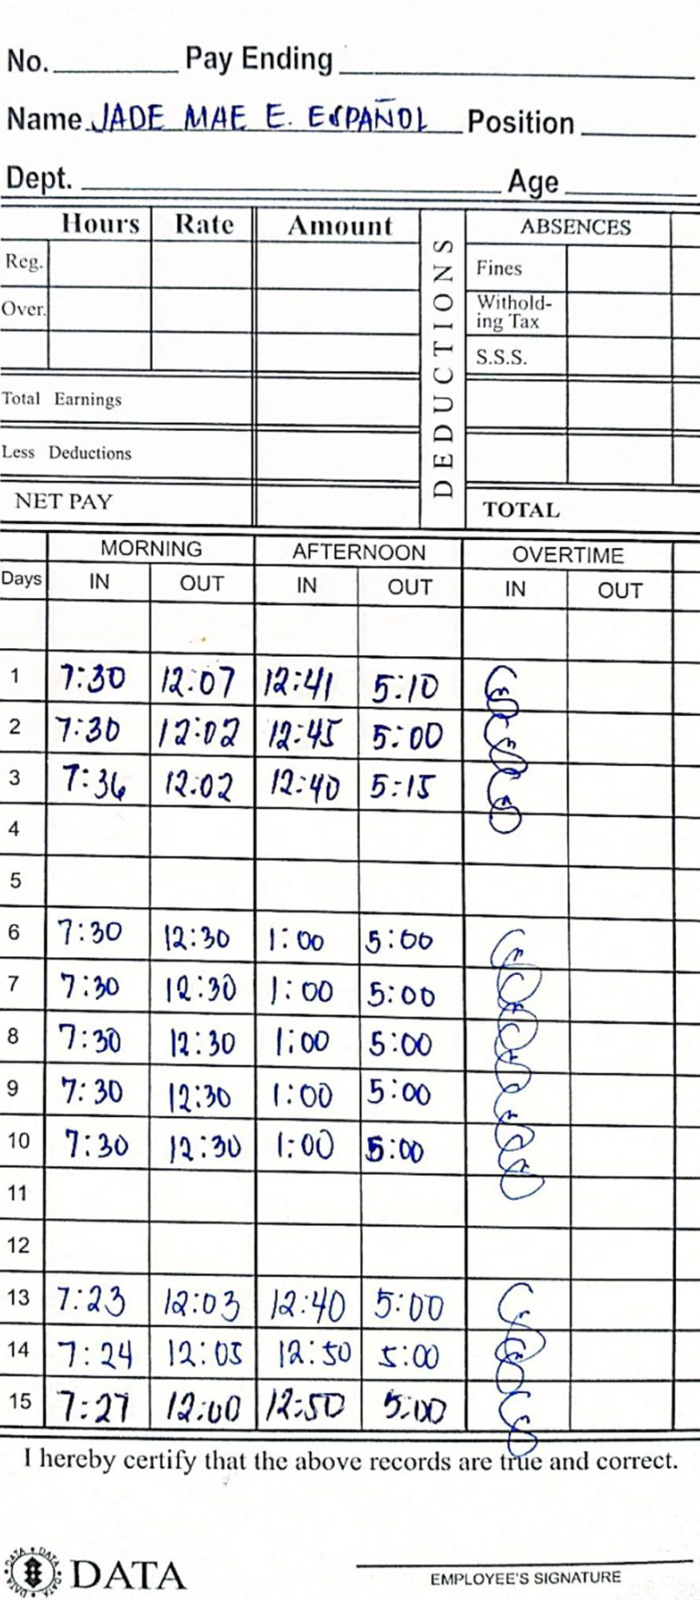 No. Pay Ending
Name JADE MAE E. ESPAÑOL Position
Dept. Age
Hours Rate Amount DEDUCTIONS ABSENCES
Reg. Fines
Over. Withold-
ing Tax
S.S.S.
Total Earnings
Less Deductions
NET PAY TOTAL
MORNING AFTERNOON OVERTIME
Days IN OUT IN OUT IN OUT
1 7:30 12:07 12:41 5:10
2 7:30 12:02 12:45 5:00
3 7:36 12:02 12:40 5:15
4
5
6 7:30 12:30 1:00 5:00
7 7:30 12:30 1:00 5:00
8 7:30 12:30 1:00 5:00
9 7:30 12:30 1:00 5:00
10 7:30 12:30 1:00 5:00
11
12
13 7:23 12:03 12:40 5:00
14 7:24 12:05 12:50 5:00
15 7:27 12:00 12:50 5:00
I hereby certify that the above records are true and correct.
DATA
EMPLOYEE'S SIGNATURE